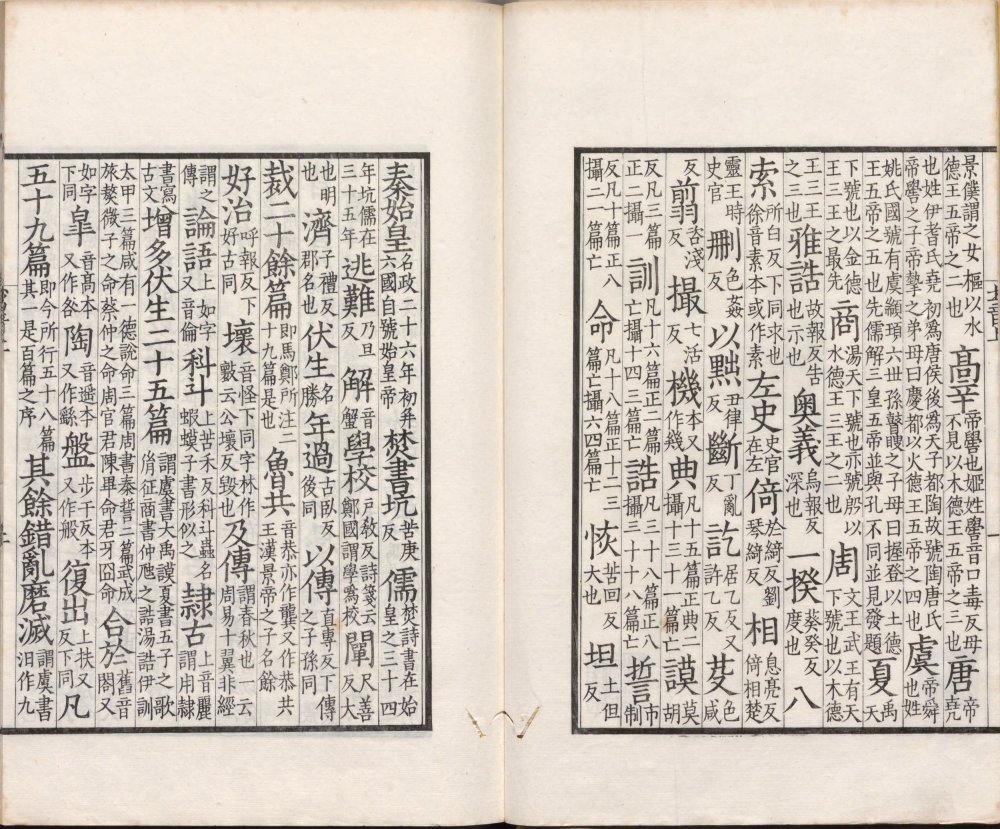 景僕謂之女樞以水德王五帝之二也高辛帝嚳也姬姓嚳音口毒反母不見以木德王五帝之三也唐帝堯
也姓伊耆氏堯初爲唐侯後爲天子都陶故號陶唐氏帝嚳之子帝摯之弟母曰慶都以火德王五帝之四也虞帝舜也姓
姚氏國號有虞顓頊六世孫瞽瞍之子母曰握登以土德王五帝之五也先儒解三皇五帝並與孔不同並見發題夏禹天
下號也以金德王三王之最先商湯天下號也亦號殷以水德王三王之二也周文王武王有天下號也以木德
王三王之三也雅誥故報反告也示也奧義烏報反深也一揆葵癸反度也八
索所白反下同求也徐音素本或作素左史史官在左倚於綺反劉琴綺反相息亮反倚相楚
靈王時史官刪色姦反以黜尹律反斷丁亂反訖居乙反又許乙反芟色咸
反翦咨淺反撮七活反機本又作幾典凡十五篇正典二攝十三十一篇亡謨莫胡
反凡三篇正二攝一訓凡十六篇正二篇亡攝十四三篇亡誥凡三十八篇正八攝三十十八篇亡誓市制
反凡十篇正八攝二一篇亡命凡十八篇正十二三篇亡攝六四篇亡恢苦回反大也坦土但反
秦始皇名政二十六年初并六國自號始皇帝焚書坑苦庚反儒焚詩書在始皇之三十四
年坑儒在三十五年逃難乃旦反解音蟹學校戶敎反詩箋云鄭國謂學爲校闡尺善反大
也明也濟子禮反郡名也伏生名勝年過古臥反後同以傳直專反下傳之子孫同
裁二十餘篇即馬鄭所注二十九篇是也魯共音恭亦作龔又作恭共王漢景帝之子名餘
好治呼報反下好古同壞音怪下同字林作㱮云公壞反毀也及傳謂春秋也一云周易十翼非經
謂之傳論語上如字又音倫科斗上苦禾反科斗蟲名蝦蟆子書形似之隷古上音麗謂用隷
書寫古文增多伏生二十五篇謂虞書大禹謨夏書五子之歌胤征商書仲虺之誥湯誥伊訓
太甲三篇咸有一德說命三篇周書泰誓三篇武成旅獒微子之命蔡仲之命周官君陳畢命君牙冏命合於舊音閤又
如字下同臯音高本又作咎陶音遙本又作繇盤步干反本又作般復出上扶又反下同凡
五十九篇即今所行五十八篇其一是百篇之序其餘錯亂磨滅謂虞書汨作九